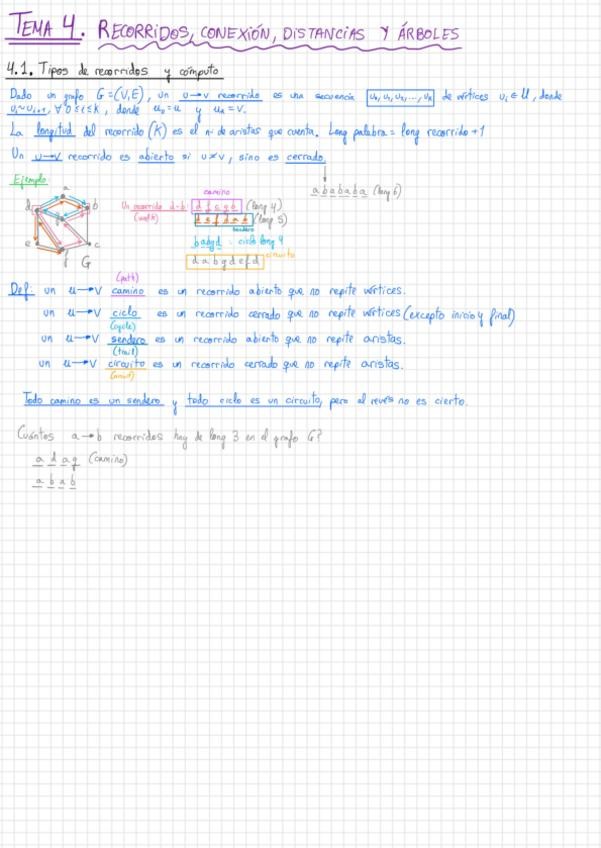 TEMA 4. RECORRIDOS, CONEXIÓN, DISTANCIAS Y ÁRBOLES
4.1. Tipos de recorridos y cómputo
Dado un grafo G=(V,E), un u→v recorrido es una secuencia u₀, u₁, u₂, ..., uₖ de vértices uᵢ ∈ U, donde
uᵢ~uᵢ₊₁, ∀ 0≤i≤k, donde u₀=u y uₖ=v.
La longitud del recorrido (K) es el nº de aristas que cuenta. Long palabra = long recorrido +1
Un u→v recorrido es abierto si u≠v, sino es cerrado.
a b a b a b a (long 6)
Ejemplo
a
d
b
e
c
f
G
camino
Un recorrido d-b: d f c g b (long 4)
(walk) d e f d a b (long 5)
sendero
b a d g d = ciclo long 4
d a b g d e f d circuito
Def: un u→v camino es un recorrido abierto que no repite vértices.
(path)
un u→v ciclo es un recorrido cerrado que no repite vértices (excepto inicio y final)
(cycle)
un u→v sendero es un recorrido abierto que no repite aristas.
(trail)
un u→v circuito es un recorrido cerrado que no repite aristas.
Todo camino es un sendero y todo ciclo es un circuito, pero al revés no es cierto.
Cuántos a→b recorridos hay de long 3 en el grafo G?
a d a g (camino)
a b a b